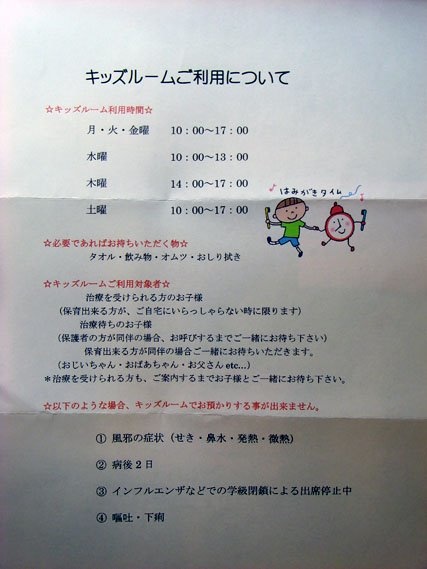 キッズルームご利用について
☆キッズルーム利用時間☆
月・火・金曜 10：00～17：00
水曜 10：00～13：00
木曜 14：00～17：00
土曜 10：00～17：00
はみがきタイム
☆必要であればお持ちいただく物☆
タオル・飲み物・オムツ・おしり拭き
☆キッズルームご利用対象者☆
治療を受けられる方のお子様
（保育出来る方が、ご自宅にいらっしゃらない時に限ります）
治療待ちのお子様
（保護者の方が同伴の場合、お呼びするまでご一緒にお待ち下さい）
保育出来る方が同伴の場合ご一緒にお待ちいただきます。
（おじいちゃん・おばあちゃん・お父さん etc…）
＊治療を受けられる方も、ご案内するまでお子様とご一緒にお待ち下さい。
☆以下のような場合、キッズルームでお預かりする事が出来ません。
① 風邪の症状（せき・鼻水・発熱・微熱）
② 病後２日
③ インフルエンザなどでの学級閉鎖による出席停止中
④ 嘔吐・下痢